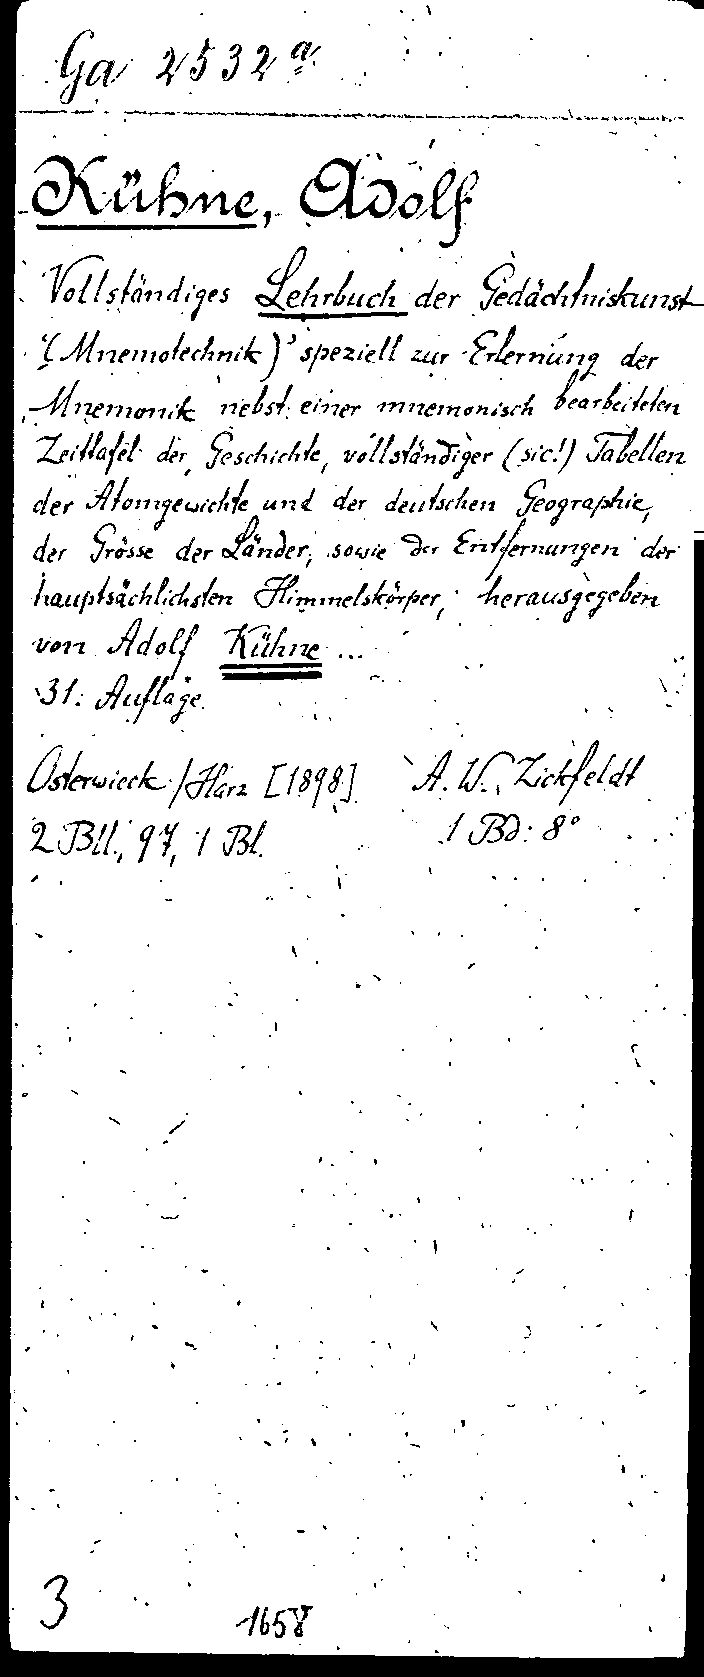 Ga 2532 a.
Kühne, Adolf
Vollständiges Lehrbuch der Gedächtniskunst
(Mnemotechnik) speziell zur Erlernung der
Mnemonik nebst einer mnemonisch bearbeiteten
Zeittafel der Geschichte, vollständiger (sic!) Tabellen
der Atomgewichte und der deutschen Geographie,
der Grösse der Länder, sowie der Entfernungen der
hauptsächlichsten Himmelskörper, herausgegeben
von Adolf Kühne ...
31. Auflage.
Osterwieck/Harz [1898] A. W. Zickfeldt
2 Bll., 97, 1 Bl. 1 Bd. 8°
3 1658